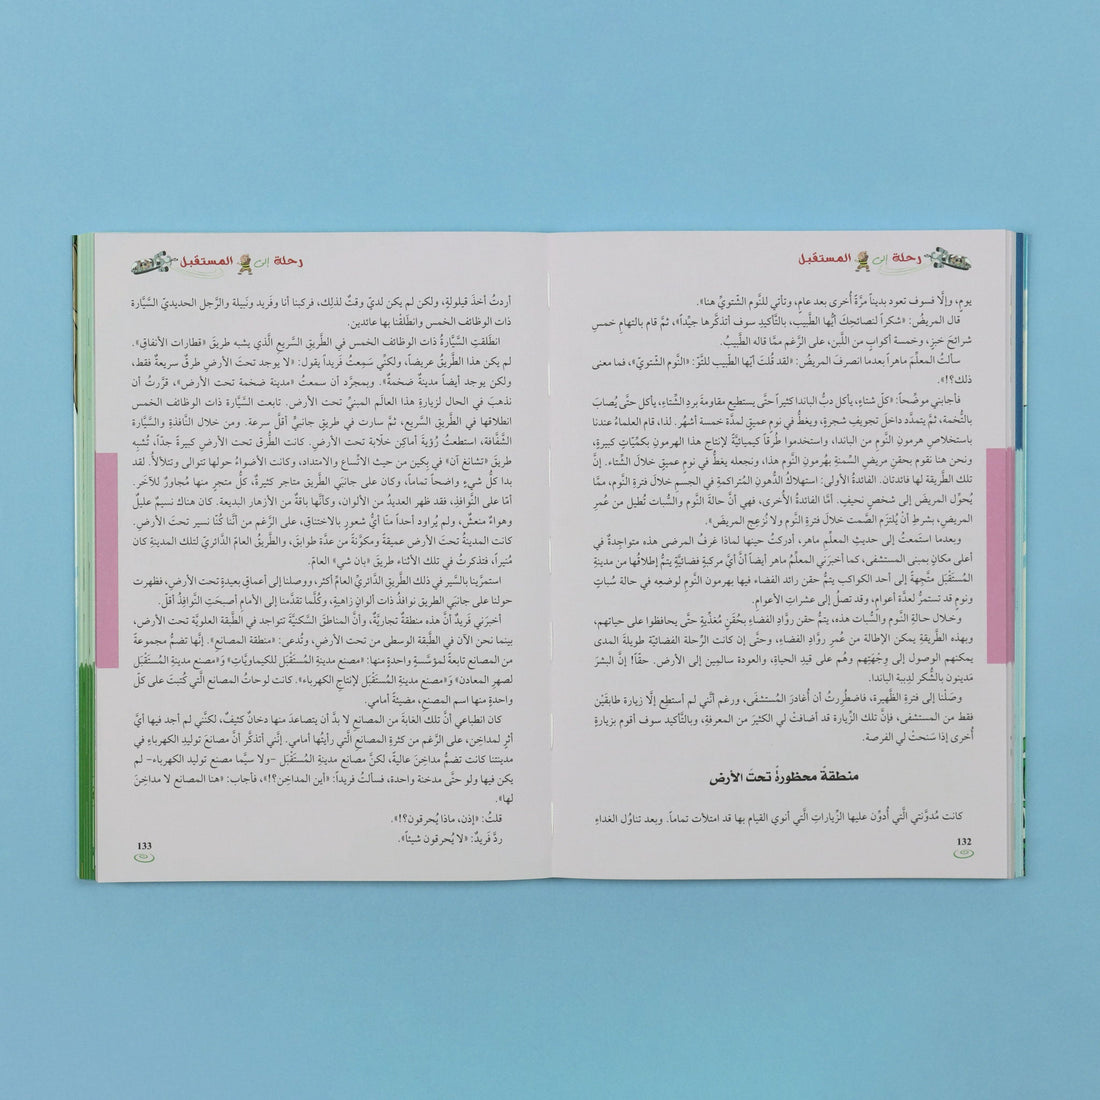 رحلة إلى المستقبل
يومٍ، وإلَّا فسوف تعود بديناً مرَّةً أُخرى بعد عامٍ، وتأتي للنَّوم الشّتويّ هنا».
قال المريضُ: «شكراً لنصائحكَ أيُّها الطَّبيب، بالتَّأكيدِ سوف أتذكَّرها جيِّداً»، ثمَّ قام بالتهامِ خمسِ
شرائحَ خبزٍ، وخمسة أكوابٍ من اللَّبن، على الرَّغم ممَّا قاله الطَّبيبُ.
سألتُ المعلِّمَ ماهراً بعدما انصرفَ المريضُ: «لقد قُلتَ أيّها الطَّبيب للتَّوّ: «النَّوم الشّتويّ»، فما معنى
ذلك؟!».
فأجابني موضِّحاً: «كلّ شتاءٍ، يأكل دبُّ الباندا كثيراً حتَّى يستطيع مقاومةَ بردِ الشّتاء، يأكل حتَّى يُصابَ
بالتُّخمة، ثمَّ يتمدَّد داخلَ تجويفِ شجرةٍ، ويغطُّ في نومٍ عميقٍ لمدَّة خمسة أشهُر. لذا، قام العلماءُ عندنا
باستخلاصِ هرمونِ النَّومِ من الباندا، واستخدموا طُرقاً كيميائيَّةً لإنتاج هذا الهرمونِ بكمِّيّاتٍ كبيرةٍ،
ونحن هنا نقوم بحقنِ مريضِ السِّمنةِ بهُرمونِ النَّوم هذا، ونجعله يغطُّ في نومٍ عميق خلالَ الشِّتاء. إنَّ
تلك الطَّريقة لها فائدتان. الفائدةُ الأولى: استهلاكُ الدُّهونِ المُتراكمةِ في الجسم خلال فترةِ النَّوم، ممَّا
يُحوِّل المريضَ إلى شخصٍ نحيفٍ. أمَّا الفائدةُ الأُخرى، فهي أنَّ حالةَ النَّوم والسُّبات تُطيل من عُمرِ
المريض، بشرطِ أنْ يُلتزَم الصَّمت خلالَ فترة النَّوم ولا نُزعِج المريضَ».
وبعدما استمعتُ إلى حديثِ المعلِّم ماهر، أدركتُ حينها لماذا غرفُ المرضى هذه متواجِدةٌ في
أعلى مكانٍ بمبنى المستشفى، كما أخبَرَني المعلِّمُ ماهر أيضاً أنَّ أيَّ مركبةٍ فضائيَّةٍ يتمُّ إطلاقُها من مدينةِ
المُستَقْبَل متَّجِهةً إلى أحد الكواكب يتمُّ حقن رائد الفضاء فيها بهرمون النَّوم لوضعِه في حالة سُباتٍ
ونومٍ قد تستمرُّ لعدَّة أعوام، وقد تصلُ إلى عشراتِ الأعوام.
وخلال حالةِ النَّوم والسُّبات هذه، يتمُّ حقن روَّادِ الفضاءِ بحُقنٍ مُغذِّيةٍ حتَّى يحافظوا على حياتِهم،
وبهذه الطَّريقةِ يمكن الإطالة من عُمرِ روَّادِ الفضاء، وحتَّى إن كانت الرِّحلة الفضائيَّة طويلةَ المدى
يمكنهم الوصول إلى وِجْهَتِهم وهُم على قيدِ الحياةِ، والعودة سالمِين إلى الأرض. حقّاً! إنَّ البشرَ
مَدينون بالشُّكر لدِببة الباندا.
وصَلْنا إلى فترةِ الظَّهيرة، فاضطُررتُ أن أُغادرَ المُستشفَى، ورغم أنَّني لم أستطِع إلَّا زيارة طابقَيْن
فقط من المستشفى، فإنَّ تلك الزِّيارة قد أضافتْ لي الكثيرَ من المعرفةِ، وبالتَّأكيد سوف أقوم بزيارةٍ
أُخرى إذا سَنحتْ لي الفرصة.
منطقةٌ محظورةٌ تحتَ الأرض
كانت مُدوَّنتي الَّتي أُدوِّن عليها الزِّياراتِ الَّتي أنوي القيام بها قد امتلأت تماماً. وبعد تناوُل الغداءِ
132
رحلة إلى المستقبل
أردتُ أخذَ قيلولةٍ، ولكن لم يكن لديّ وقتٌ لذلك، فركبنا أنا وفَريد ونَبيلة والرَّجل الحديديّ السَّيَّارة
ذات الوظائف الخمس وانطَلَقْنا بها عائدين.
انطلقَتِ السَّيَّارةُ ذات الوظائف الخمس في الطَّريق السَّريعِ الَّذي يشبه طريقَ «قطارات الأنفاق».
لم يكن هذا الطَّريقُ عريضاً، ولكنِّي سَمِعتُ فَريداً يقول: «لا يوجد تحتَ الأرضِ طرقٌ سريعةٌ فقط،
ولكن يوجد أيضاً مدينةٌ ضخمةٌ». وبمجرَّد أن سمعتُ «مدينة ضخمة تحت الأرض»، قرَّرتُ أن
نذهبَ في الحال لزيارةِ هذا العالَم المبنيِّ تحتَ الأرض. تابعت السَّيَّارة ذات الوظائف الخمس
انطلاقَها في الطَّريق السَّريع، ثمَّ سارت في طريقٍ جانبيٍّ أقلَّ سرعة. ومن خلالِ النَّافذةِ والسَّيَّارة
الشَّفَّافة، استطعتُ رُؤيةَ أماكِن خلَّابة تحتَ الأرضِ. كانت الطُّرق تحتَ الأرضِ كبيرةً جدّاً، تُشبِه
طريقَ «تشانغ آن» في بكين من حيث الاتّساع والامتداد، وكانت الأضواءُ حولها تتوالى وتتلألأ. لقد
بدا كلُّ شيءٍ واضحاً تماماً، وكان على جانبَي الطَّريق متاجر كثيرةٌ، كلُّ متجرٍ منها مُجاورٌ للآخَر.
أمَّا على النَّوافِذ، فقد ظهر العديدُ من الألوان، وكأنَّها باقةٌ من الأزهار البديعة. كان هناك نسيمٌ عليلٌ
وهواءٌ منعشٌ، ولم يُراود أحداً منَّا أيُّ شعورٍ بالاختناق، على الرَّغم من أنَّنا كُنَّا نسير تحتَ الأرضِ.
كانت المدينةُ تحتَ الأرض عميقةً ومكوَّنةً من عدَّة طوابقَ، والطَّريقُ العامُّ الدَّائريّ لتلك المدينةِ كان
مُنيراً، فتذكرتُ في تلك الأثناء طريق «بان شي» العامّ.
استمرَّينا بالسَّير في ذلك الطَّريق الدَّائريّ العامّ أكثر، ووصلنا إلى أعماقٍ بعيدةٍ تحت الأرضِ، فظهرت
حولنا على جانبَي الطريق نوافذُ ذات ألوانٍ زاهيةٍ، وكُلَّما تقدَّمنا إلى الأمامِ أصبحَتِ النَّوافِذُ أقلّ.
أخبرَني فَريدٌ أنَّ هذه منطقةٌ تجاريَّةٌ، وأنَّ المناطقَ السَّكنيَّة تتواجد في الطَّبقة العلويَّة تحتَ الأرض،
بينما نحن الآنَ في الطَّبقة الوسطى من تحتِ الأرض، وتُدعى: «منطقة المصانع». إنَّها تضمُّ مجموعةً
من المصانع تابعةً لمؤسَّسةٍ واحدةٍ منها: «مصنع مدينةِ المُستَقْبَل للكيماويَّات» وَ«مصنع مدينةِ المُستَقْبَل
لصهرِ المعادن» وَ«مصنع مدينةِ المُستَقْبَل لإنتاجِ الكهرباء». كانت لوحاتُ المصانعِ الَّتي كُتبتْ على كلِّ
واحدةٍ منها اسم المصنعِ، مضيئةً أمامي.
كان انطباعي أنَّ تلك الغابةَ من المصانعِ لا بدَّ أن يتصاعدَ منها دخانٌ كثيفٌ، لكنَّني لم أجد فيها أيَّ
أثرٍ لمداخِن، على الرَّغم من كثرةِ المصانعِ الَّتي رأيتُها أمامي. إنَّني أتذكَّر أنَّ مصانعَ توليدِ الكهرباءِ في
مدينتنا كانت تضمُّ مداخِنَ عاليةً، لكنَّ مصانعَ مدينةِ المُستَقْبَل -ولا سيَّما مصنع توليد الكهرباء- لم
يكن فيها ولو حتَّى مدخنة واحدة، فسألتُ فَريداً: «أين المداخِن؟!»، فأجاب: «هنا المصانع لا مداخِنَ
لها».
قلتُ: «إذن، ماذا يُحرقون؟!».
ردَّ فَريدٌ: «لا يُحرقون شيئاً».
133